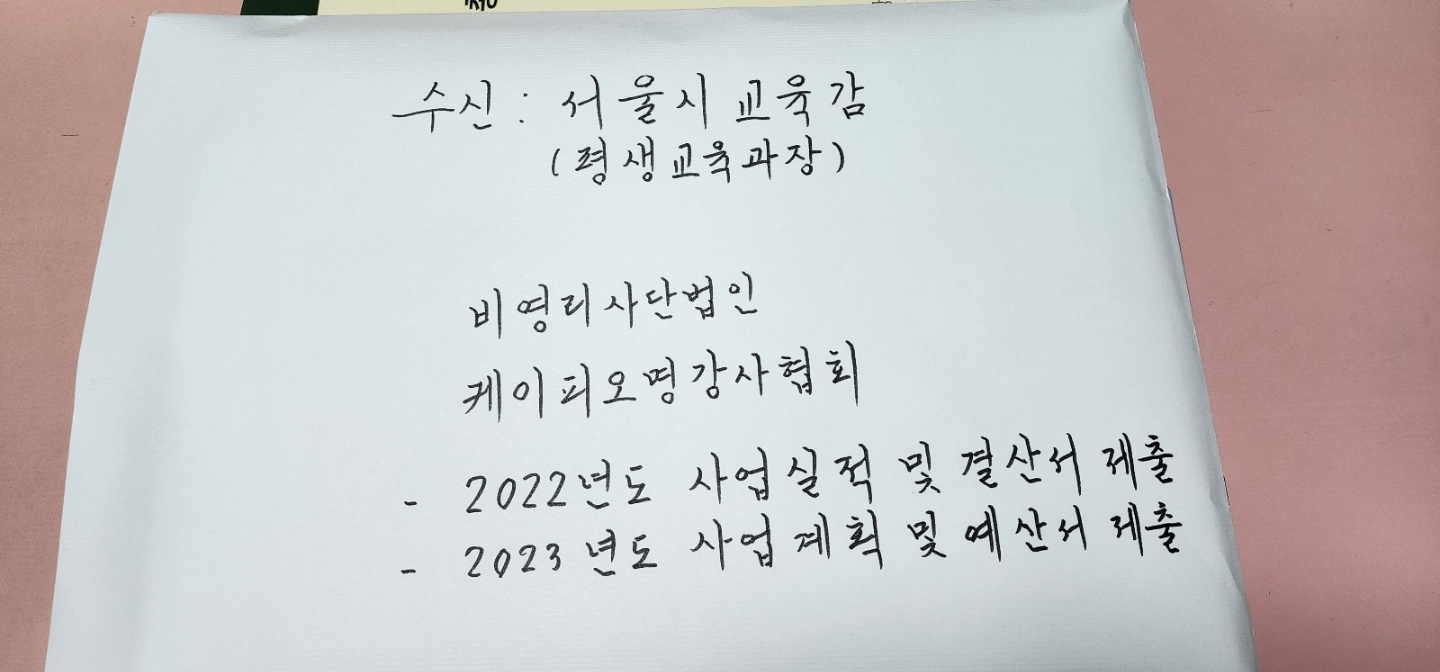 수신 : 서울시 교육감
(평생교육과장)
비영리사단법인
케이피오명강사협회
- 2022년도 사업실적 및 결산서 제출
- 2023년도 사업계획 및 예산서 제출